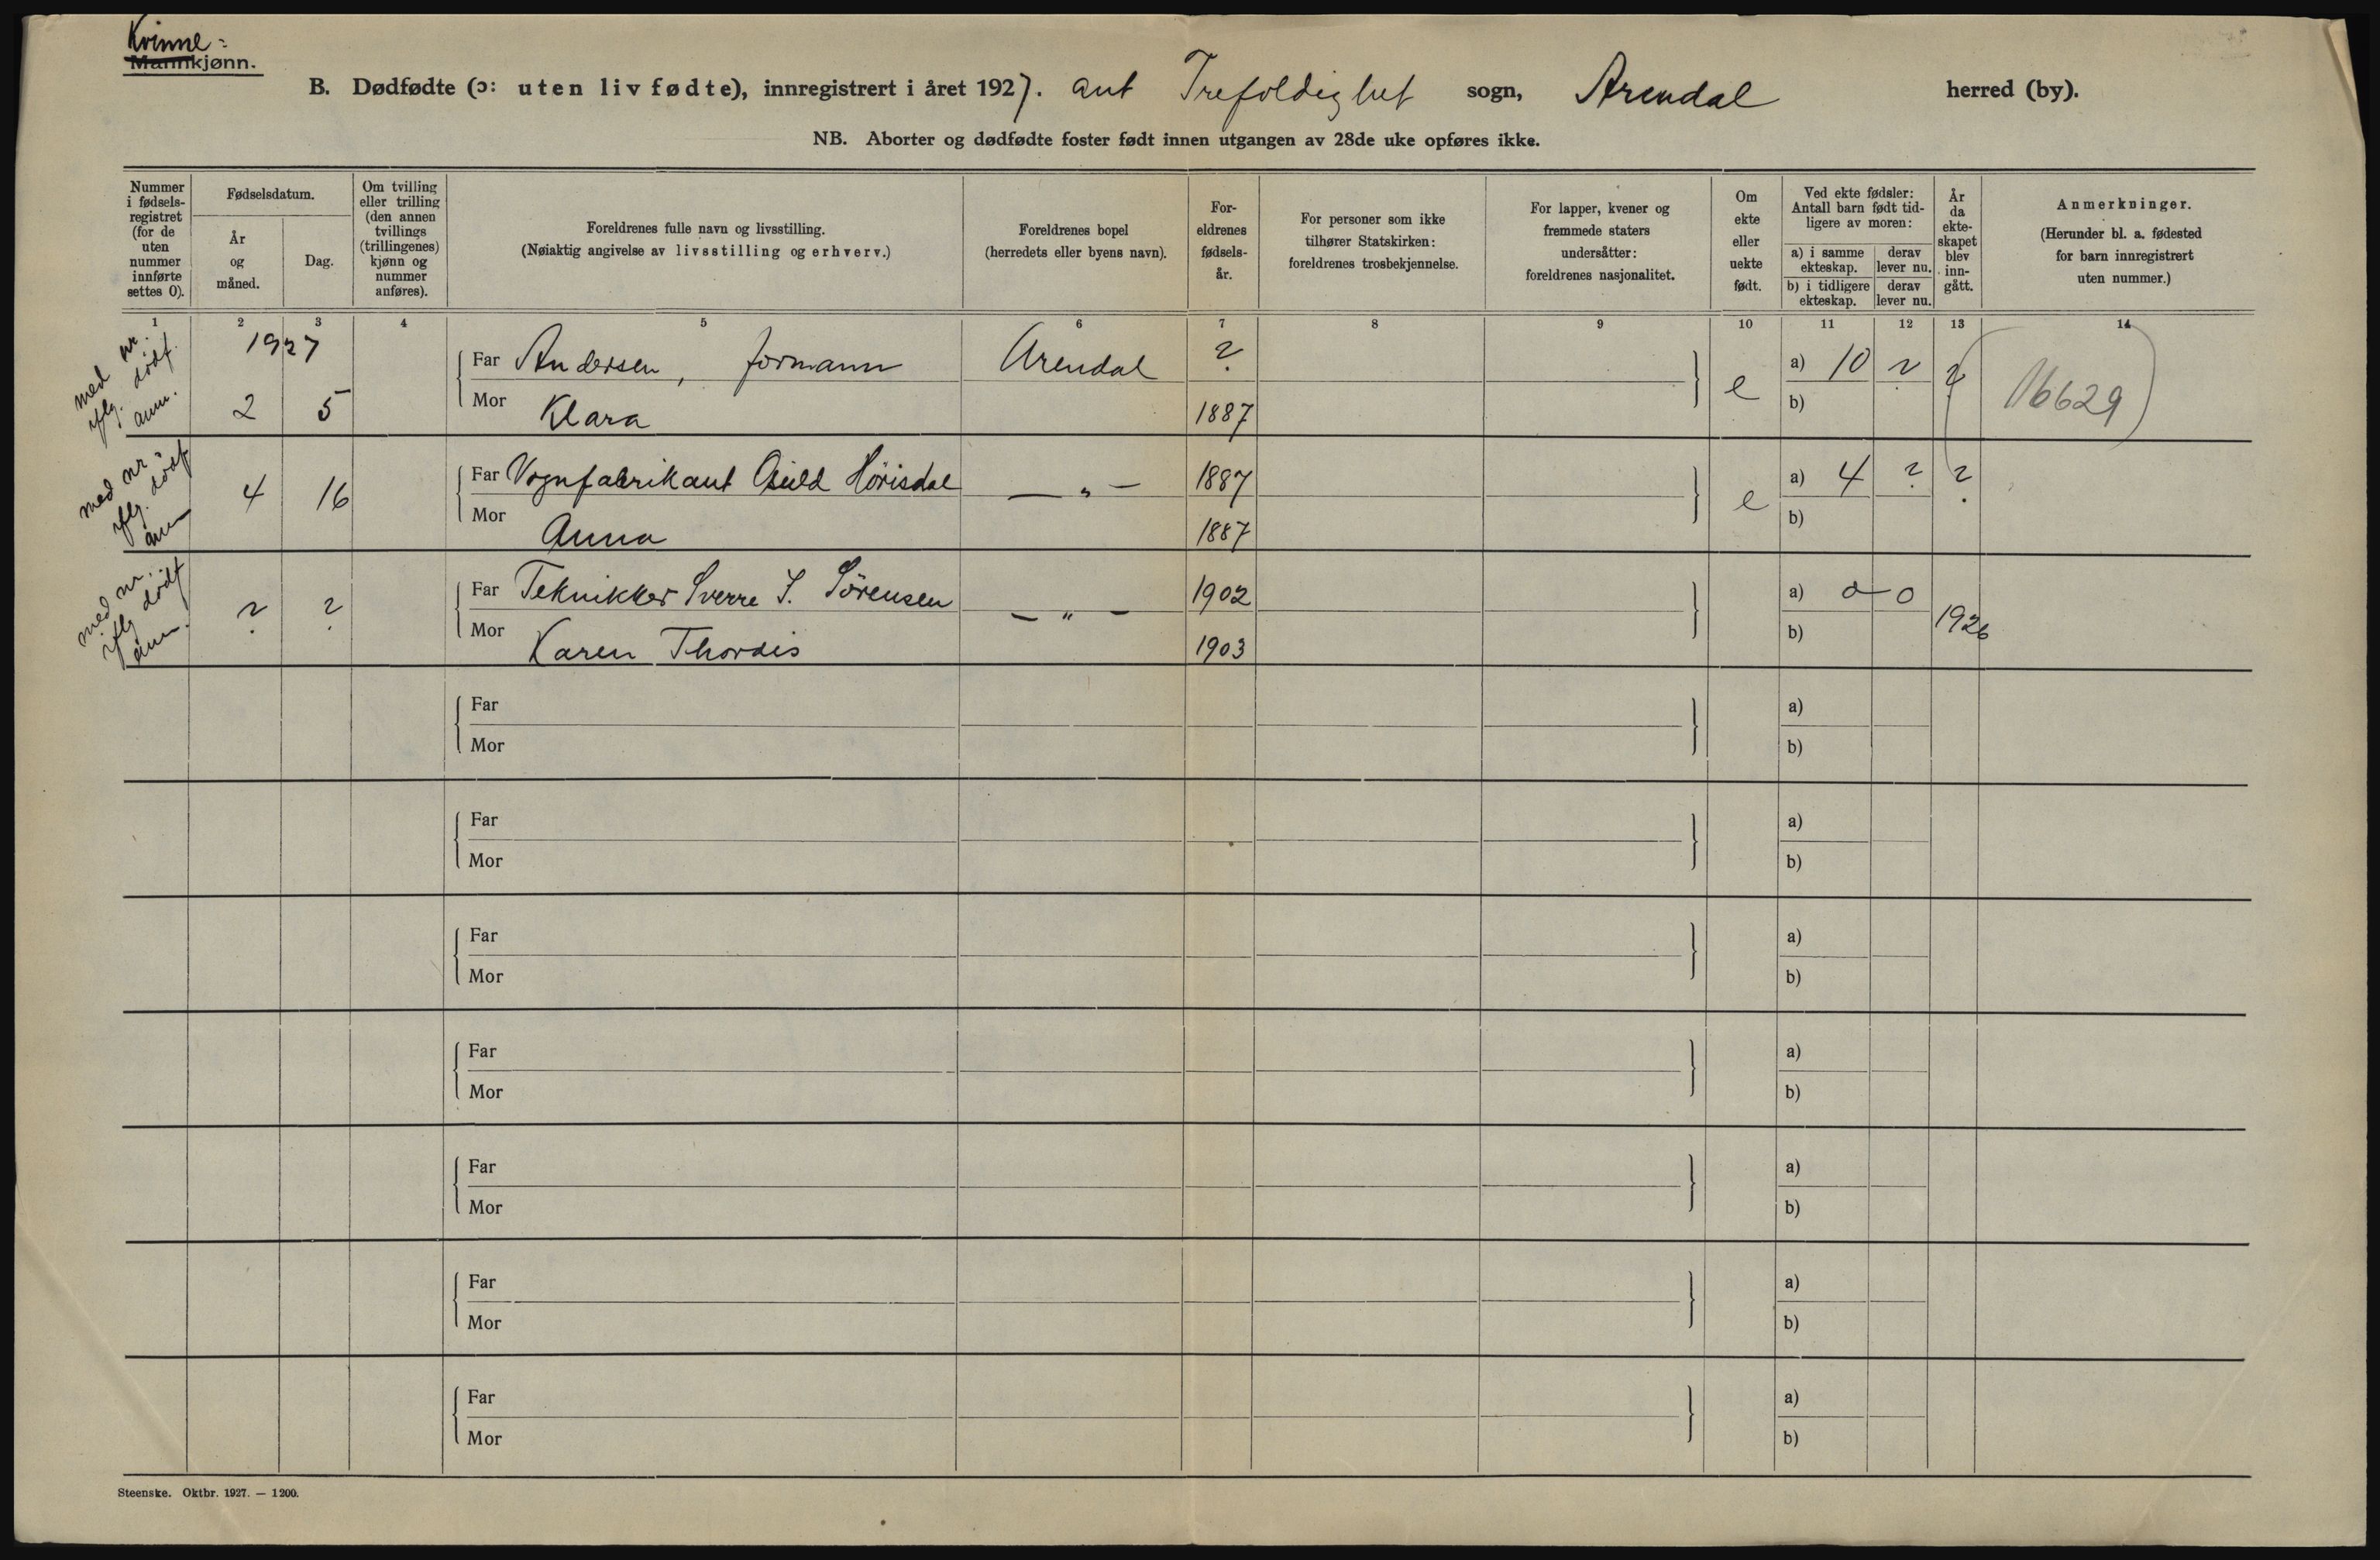 Kvinne-
Mannkjønn.
B. Dødfødte (ɔ: uten liv fødte), innregistrert i året 1927. ant Trefoldighet sogn, Arendal herred (by).
NB. Aborter og dødfødte foster født innen utgangen av 28de uke opføres ikke.
Nummer i fødsels-registret (for de uten nummer innførte settes 0).
Fødselsdatum.
År og måned.
Dag.
Om tvilling eller trilling (den annen tvillings (trillingenes) kjønn og nummer anføres).
Foreldrenes fulle navn og livsstilling.
(Nøiaktig angivelse av livsstilling og erhverv.)
Foreldrenes bopel
(herredets eller byens navn).
For-eldrenes fødsels-år.
For personer som ikke tilhører Statskirken: foreldrenes trosbekjennelse.
For lapper, kvener og fremmede staters undersåtter: foreldrenes nasjonalitet.
Om ekte eller uekte født.
Ved ekte fødsler: Antall barn født tid-ligere av moren:
a) i samme ekteskap.
derav lever nu.
b) i tidligere ekteskap.
derav lever nu.
År da ekte-skapet blev inn-gått.
Anmerkninger.
(Herunder bl. a. fødested for barn innregistrert uten nummer.)
1 2 3 4 5 6 7 8 9 10 11 12 13 14
1927
med nr. iflg. dødf. anm.
2 5
Far Andersen, formann Arendal ?
Mor Klara 1887
e a) 10 ? ?
b)
(16629)
med nr. iflg. dødf anm
4 16
Far Vognfabrikant Osuld Hørisdal — " — 1887
Mor Anna 1887
e a) 4 ? ?
b)
med nr. iflg dødf anm.
? ?
Far Teknikker Sverre I. Sørensen — " — 1902
Mor Karen Thordis 1903
a) 0 - 0 1926
b)
Far a)
Mor b)
Far a)
Mor b)
Far a)
Mor b)
Far a)
Mor b)
Far a)
Mor b)
Far a)
Mor b)
Far a)
Mor b)
Steenske. Oktbr. 1927. — 1200.